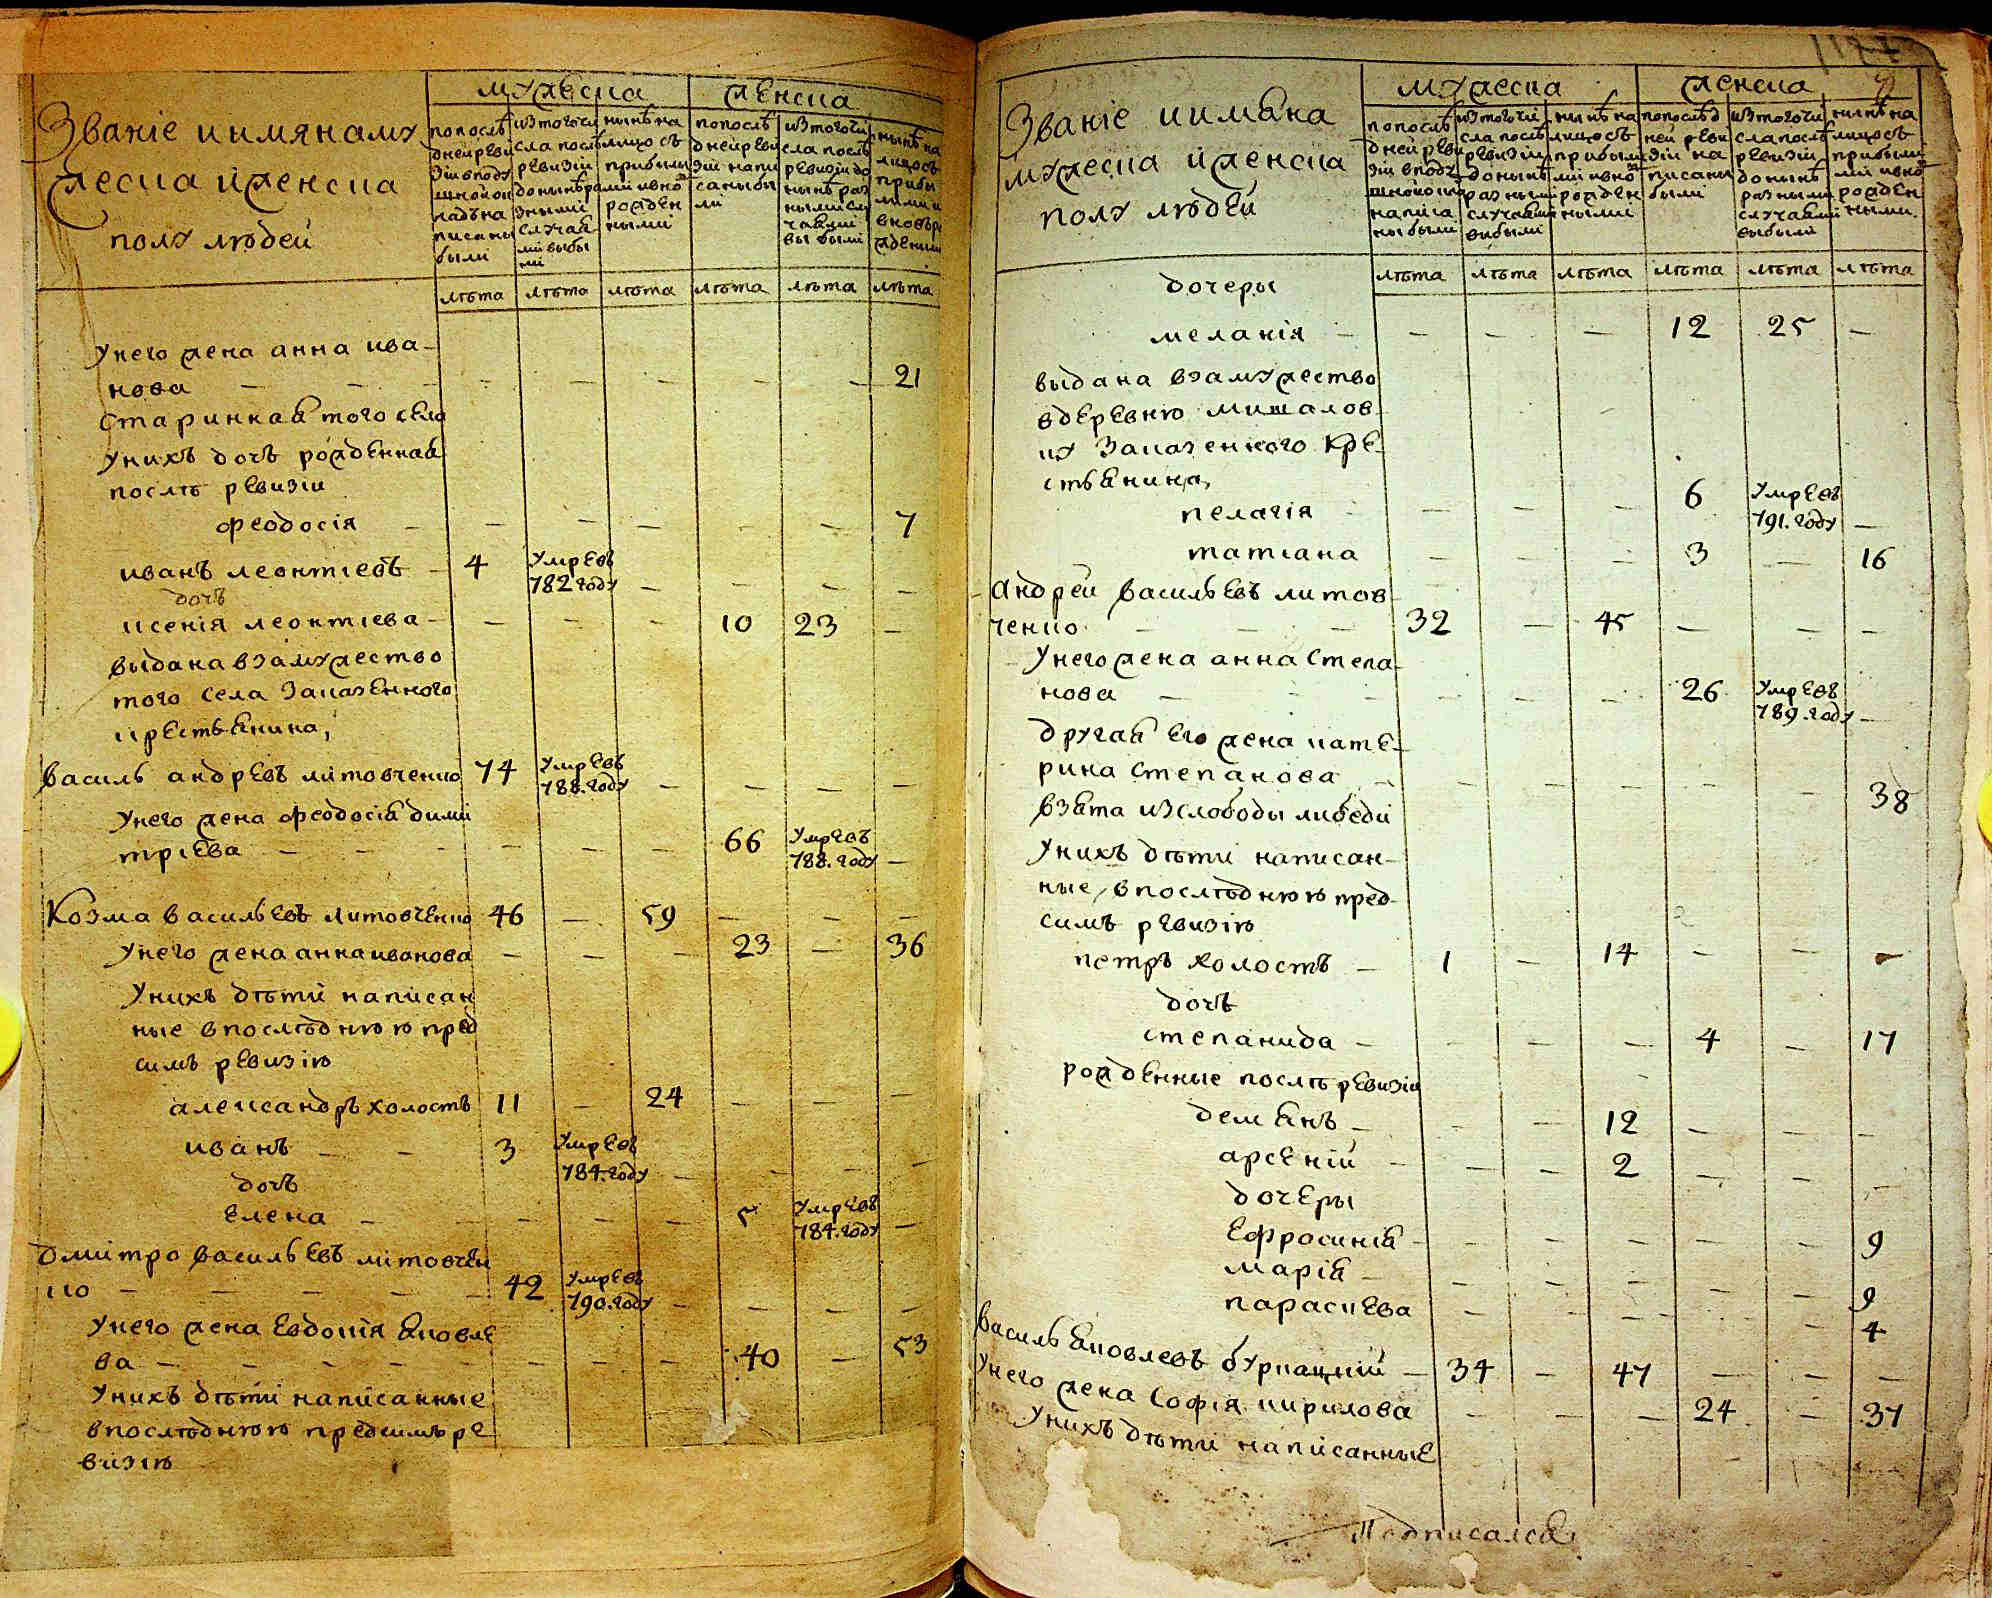 Званіе иимянамꙋ
жеска иженска
полꙋ людей
мꙋжеска
женска
попослѣ
днейреви
зіи вподꙋ
шной ок
ладъ на
писаны
были
изтогочи
сла послѣ
ревизіи
донынѣ ра
зными
слꙋчая
ми выбы
ли
нынѣ на
лицо съ
прибыли
ми ивно
рожден
ными
попослѣ
днейреви
зіи напи
саны бы
ли
изтогочи
сла послѣ
ревизіи до
нынѣ раз
ными сл
чаями
вы были
нынѣ на
лицо съ
прибы
лыми и
вновь ро
жденны
лѣта лѣта лѣта лѣта лѣта лѣта
ꙋнего жена анна ива-
нова — — — — — — — — 21
старинная того села
ꙋнихъ дочь рожденная
послѣ ревизіи
феодосія — — — — — — 7
иванъ леонтіевъ — 4 ꙋмре въ
782 годꙋ — — — —
дочь
ксенія леонтіева — — — — 10 23 —
выдана взамꙋжество
того села Заказенного
крестьянина,
василь андреевъ литовченко 74 ꙋмре въ
788. годꙋ — — — —
ꙋнего жена феодосія дими
тріева — — — — — — 66 ꙋмре въ
788. годꙋ —
Козма васильевъ литовченко 46 — 59 — — —
ꙋнего жена анна иванова — — — 23 — 36
ꙋнихъ дѣти написан
ные впослѣднюю пред
симъ ревизію
александръ холостъ 11 — 24 — — —
иванъ — — 3 ꙋмре въ
784. годꙋ — — — —
дочь
елена — — — — — 5 ꙋмре въ
784. годꙋ —
дмитро васильевъ литовчен
ко — — — — — 42 ꙋмре въ
790. годꙋ — — — —
ꙋнего жена евдокія яковле
ва — — — — — — — — 40 — 53
ꙋнихъ дѣти написанные
впослѣднюю предсимъ ре
визію
Званіе иимяна
мꙋжеска иженска
полꙋ людей
мꙋжеска
женска
попослѣ
дней реви
зіи вподꙋ
шной окл
написа
ны были
изтогочи
сла послѣ
ревизіи
донынѣ
разными
слꙋчаями
выбыли
нынѣ на
лицо съ
прибылы
ми ивно
рожден
ными
попослѣд
ней реви
зіи на
писаны
были
изтогочи
слапослѣ
ревизіи
донынѣ
разными
слꙋчаями
выбыли
нынѣ на
лицо съ
прибылы
ми ивно
рожден
ными.
лѣта лѣта лѣта лѣта лѣта лѣта
дочеры
меланія — — — — 12 25 —
выдана взамꙋжество
вдеревню мишалов-
кꙋ Заказенного кре-
стьянина,
пелагія — — — — 6 ꙋмре въ
791. годꙋ —
татіана — — — 3 — 16
Андрей васильевъ литов-
ченко — — — 32 — 45 — — —
ꙋнего жена анна степа-
нова — — — — — — 26 ꙋмре въ
789. годꙋ —
дрꙋгая его жена кате-
рина степанова — — — — — — 38
взята изслободы либеди
ꙋнихъ дѣти написан-
ные, впослѣднюю пред-
симъ ревизію
петръ холостъ — 1 — 14 — — —
дочь
степанида — — — — 4 — 17
рожденные послѣ ревизіи
демянъ — — — 12 — — —
арсеній — — — 2 — — —
дочеры
ефросинія — — — — — — 9
марія — — — — — — 9
параскева — — — — — 4
василь яковлевъ бꙋркацкій — 34 — 47 — — —
ꙋнего жена софія кирилова — — — 24 — 37
ꙋнихъ дѣти написанные
Подписался